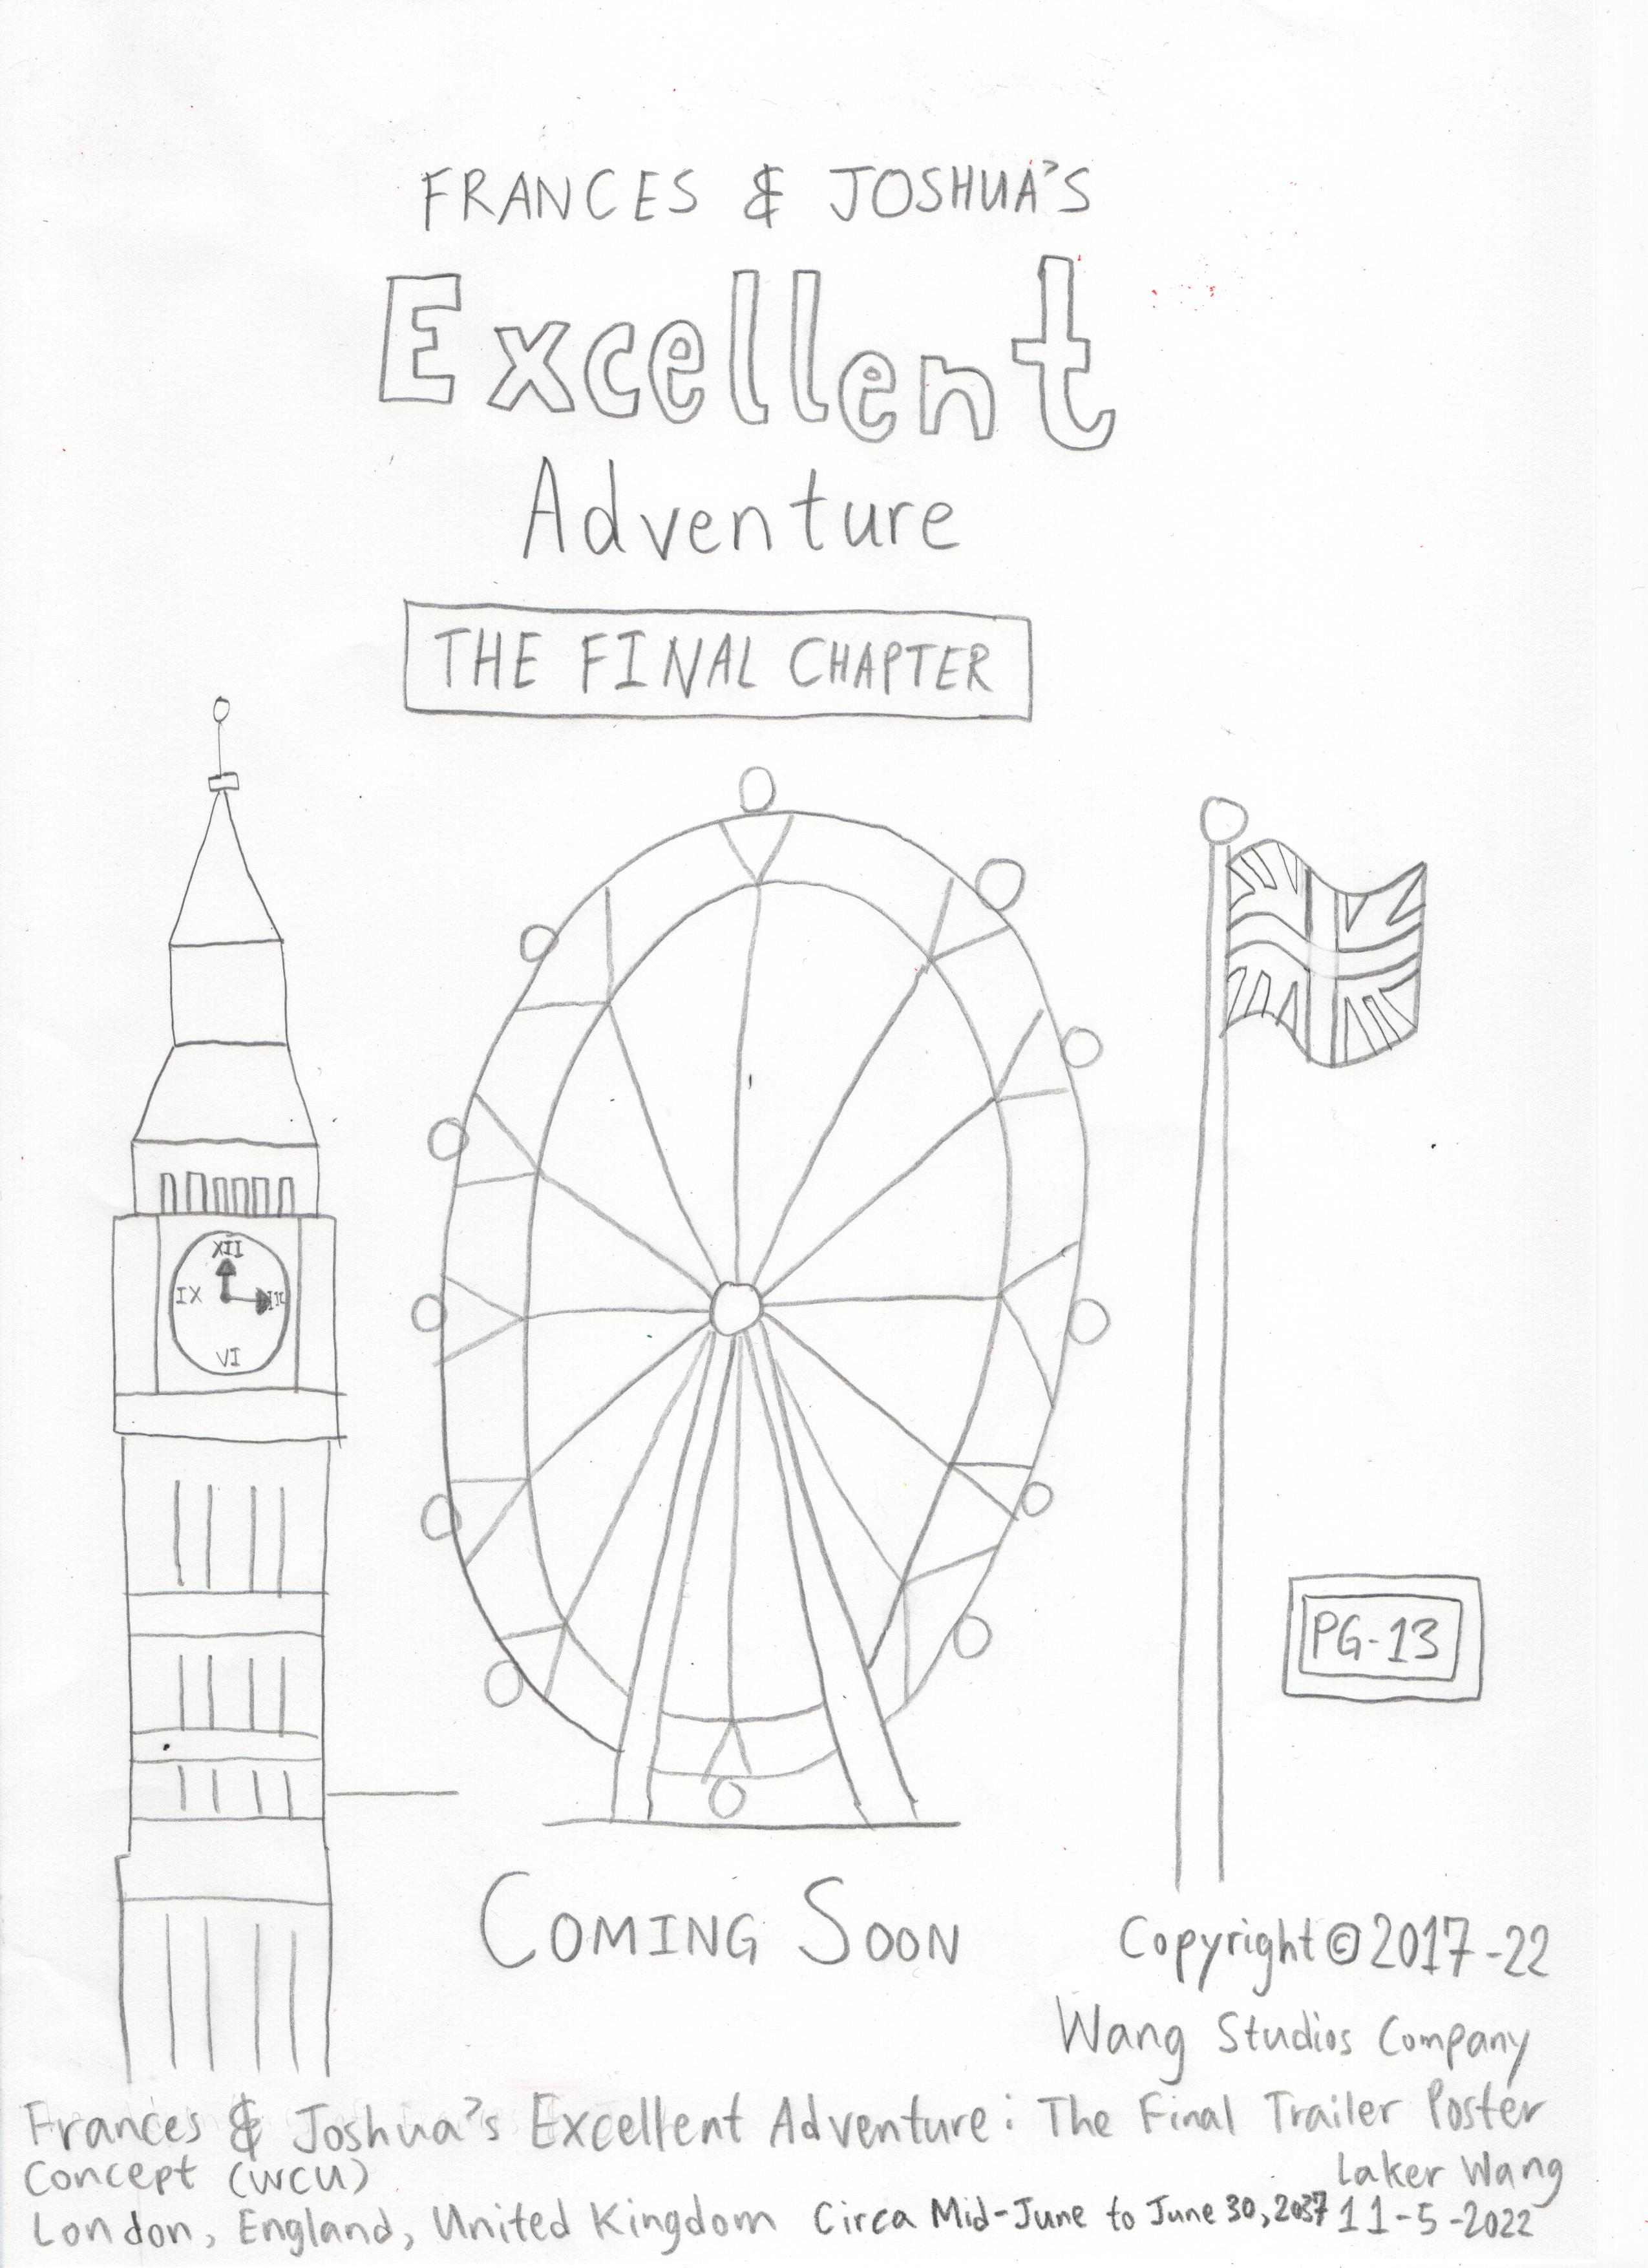 FRANCES & JOSHUA'S
Excellent
Adventure
THE FINAL CHAPTER
XII
IX III
VI
PG-13
COMING SOON
Copyright © 2017-22
Wang Studios Company
Frances & Joshua's Excellent Adventure: The Final Trailer Poster
Concept (WCU)
Laker Wang
London, England, United Kingdom Circa Mid-June to June 30, 2037 11-5-2022